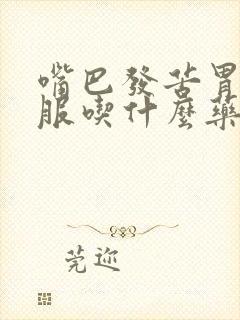 嘴巴發苦胃
服喫什麼藥
莞迩